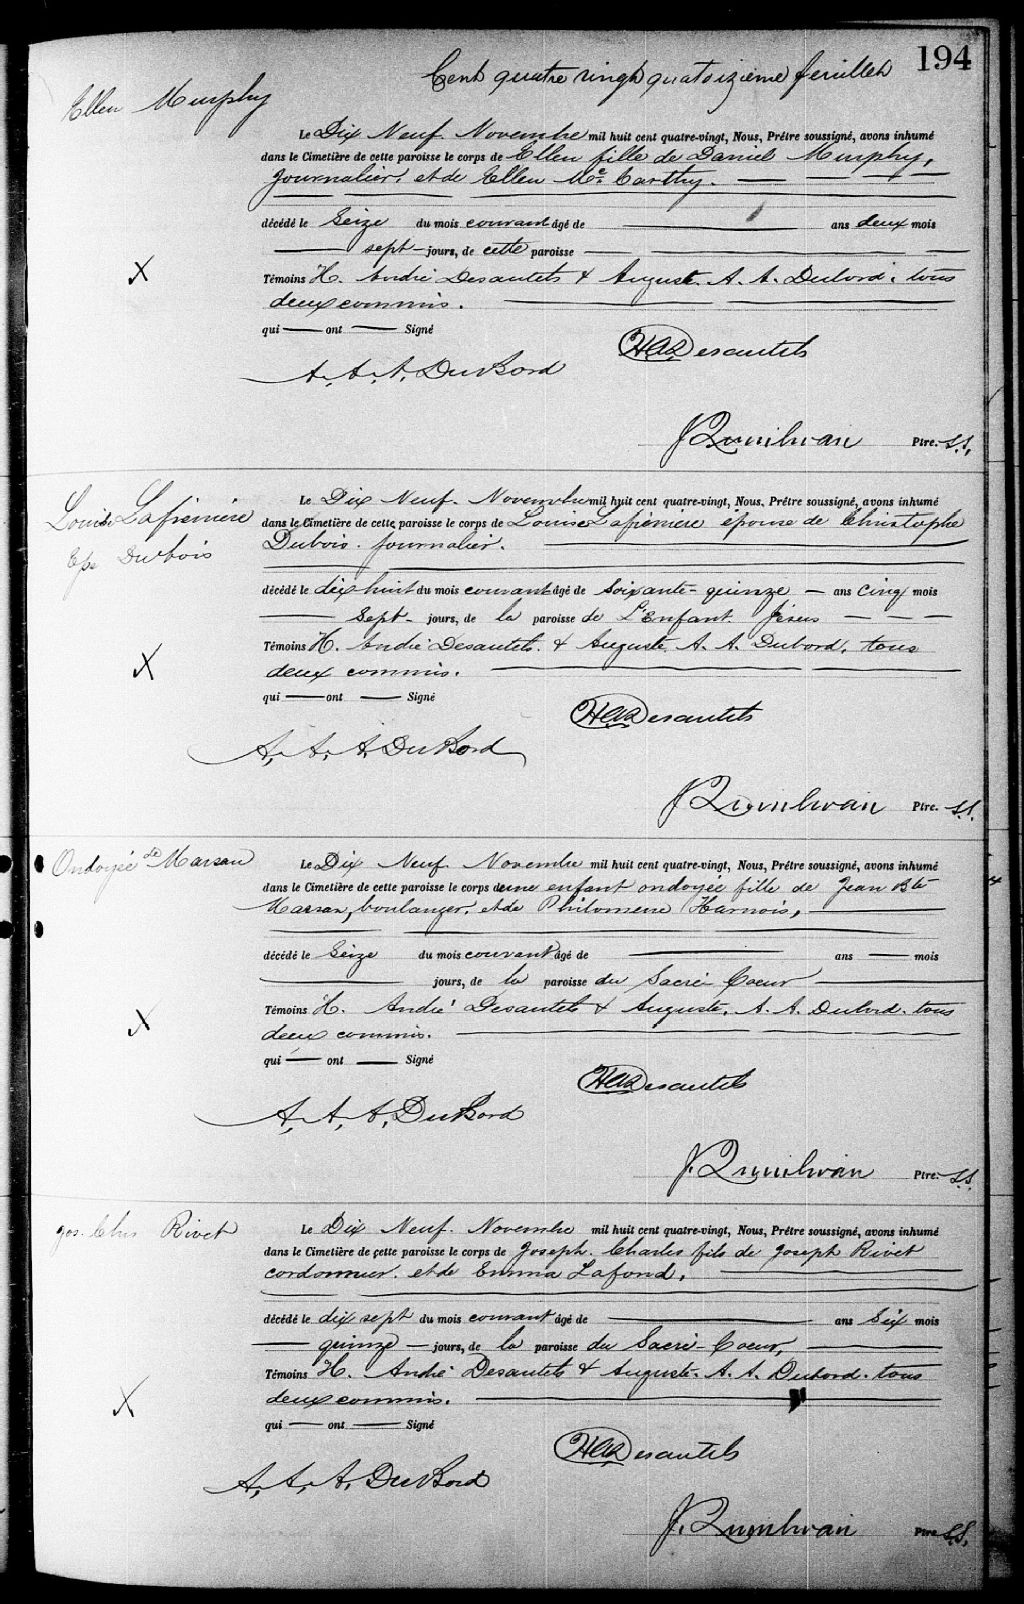 194
Cent quatre vingt quatorzieme feuillet
Ellen Murphy
Le Dix Neuf Novembre mil huit cent quatre-vingt, Nous, Prêtre soussigné, avons inhumé
dans le Cimetière de cette paroisse le corps de Ellen fille de Daniel Murphy,
journalier, et de Ellen Mc Carthy.
décédé le Seize du mois courant âgé de ans deux mois
sept jours, de cette paroisse
Témoins H. André Desautels & Auguste. A. A. Dubord, tous
deux commis.
qui ont Signé
HADesautels
A. A. A. DuBord
Ptre. S.S.
Louise Lafrenière
Eps Dubois
Le Dix Neuf. Novembre mil huit cent quatre-vingt, Nous, Prêtre soussigné, avons inhumé
dans le Cimetière de cette paroisse le corps de Louise Lafrenière épouse de Christophe
Dubois. journalier.
décédé le dix huit du mois courant âgé de soixante-quinze ans cinq mois
Sept jours, de la paroisse de L'Enfant Jésus
Témoins H. André Desautels. & Auguste. A. A. Dubord, tous
deux commis.
qui ont Signé
HADesautels
A. A. A. DuBord
Ptre. S.S.
Ondoyée de Marsan
Le Dix Neuf Novembre mil huit cent quatre-vingt, Nous, Prêtre soussigné, avons inhumé
dans le Cimetière de cette paroisse le corps d'une enfant ondoyée fille de Jean Bte
Marsan, boulanger, et de Philomene Harnois,
décédé le Seize du mois courant âgé de ans mois
jours, de la paroisse du Sacré Coeur
Témoins H. André Desautels & Auguste. A. A. Dubord. tous
deux commis.
qui ont Signé
HADesautels
A. A. A. DuBord
Ptre. S.S.
Jos. Chs Rivet
Le Dix Neuf. Novembre mil huit cent quatre-vingt, Nous, Prêtre soussigné, avons inhumé
dans le Cimetière de cette paroisse le corps de Joseph. Charles fils de Joseph Rivet
cordonnier. et de Emma Lafond,
décédé le dix sept du mois courant âgé de ans Six mois
quinze jours, de la paroisse du Sacré-Coeur,
Témoins H. André Desautels & Auguste. A. A. Dubord. tous
deux commis.
qui ont Signé
HADesautels
A. A. A. DuBord
Ptre S.S.